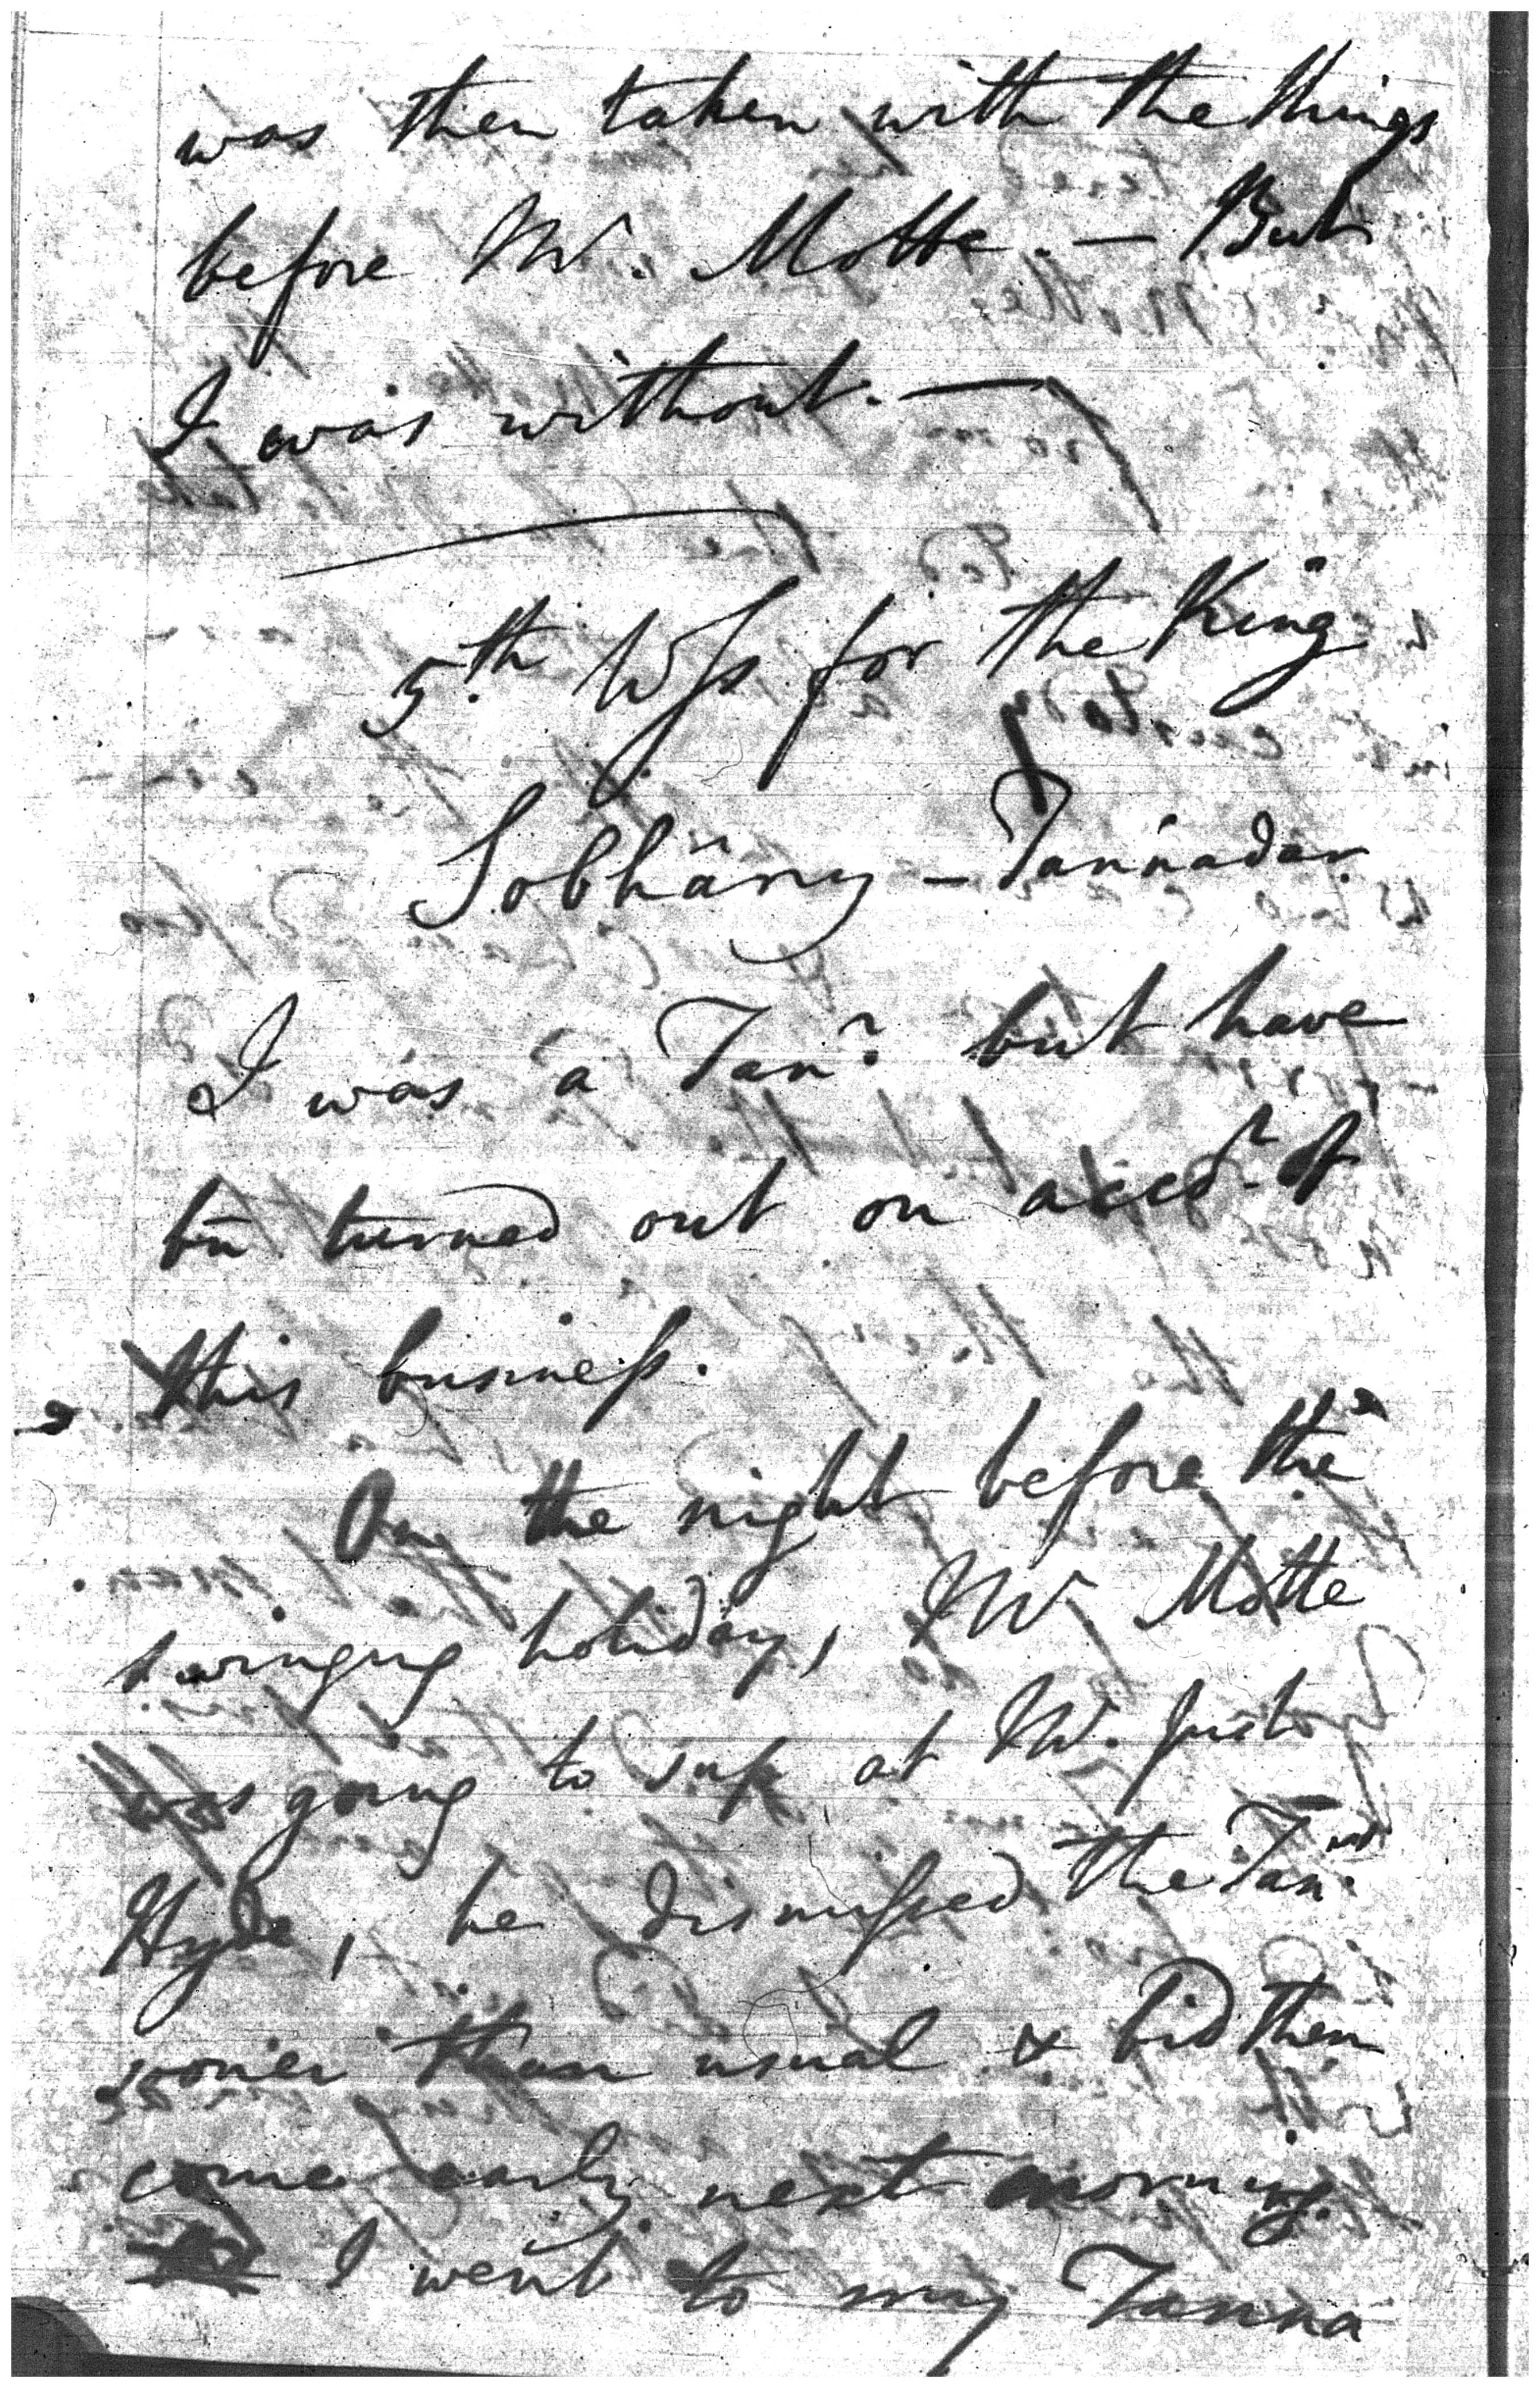 was then taken with the things
before Mr. Motte. — But
I was without. —
5th Wss for the King
Sobhâny — Tannadar
I was a Tanr. but have
bn turned out on acct. of
this business.
On the night before the
swinging holiday, Mr. Motte
was going to sup at Mr. Just
Hyde, he dismissed the Tanrs
sooner than usual & bid them
come early next morning.
I went to my Tanna